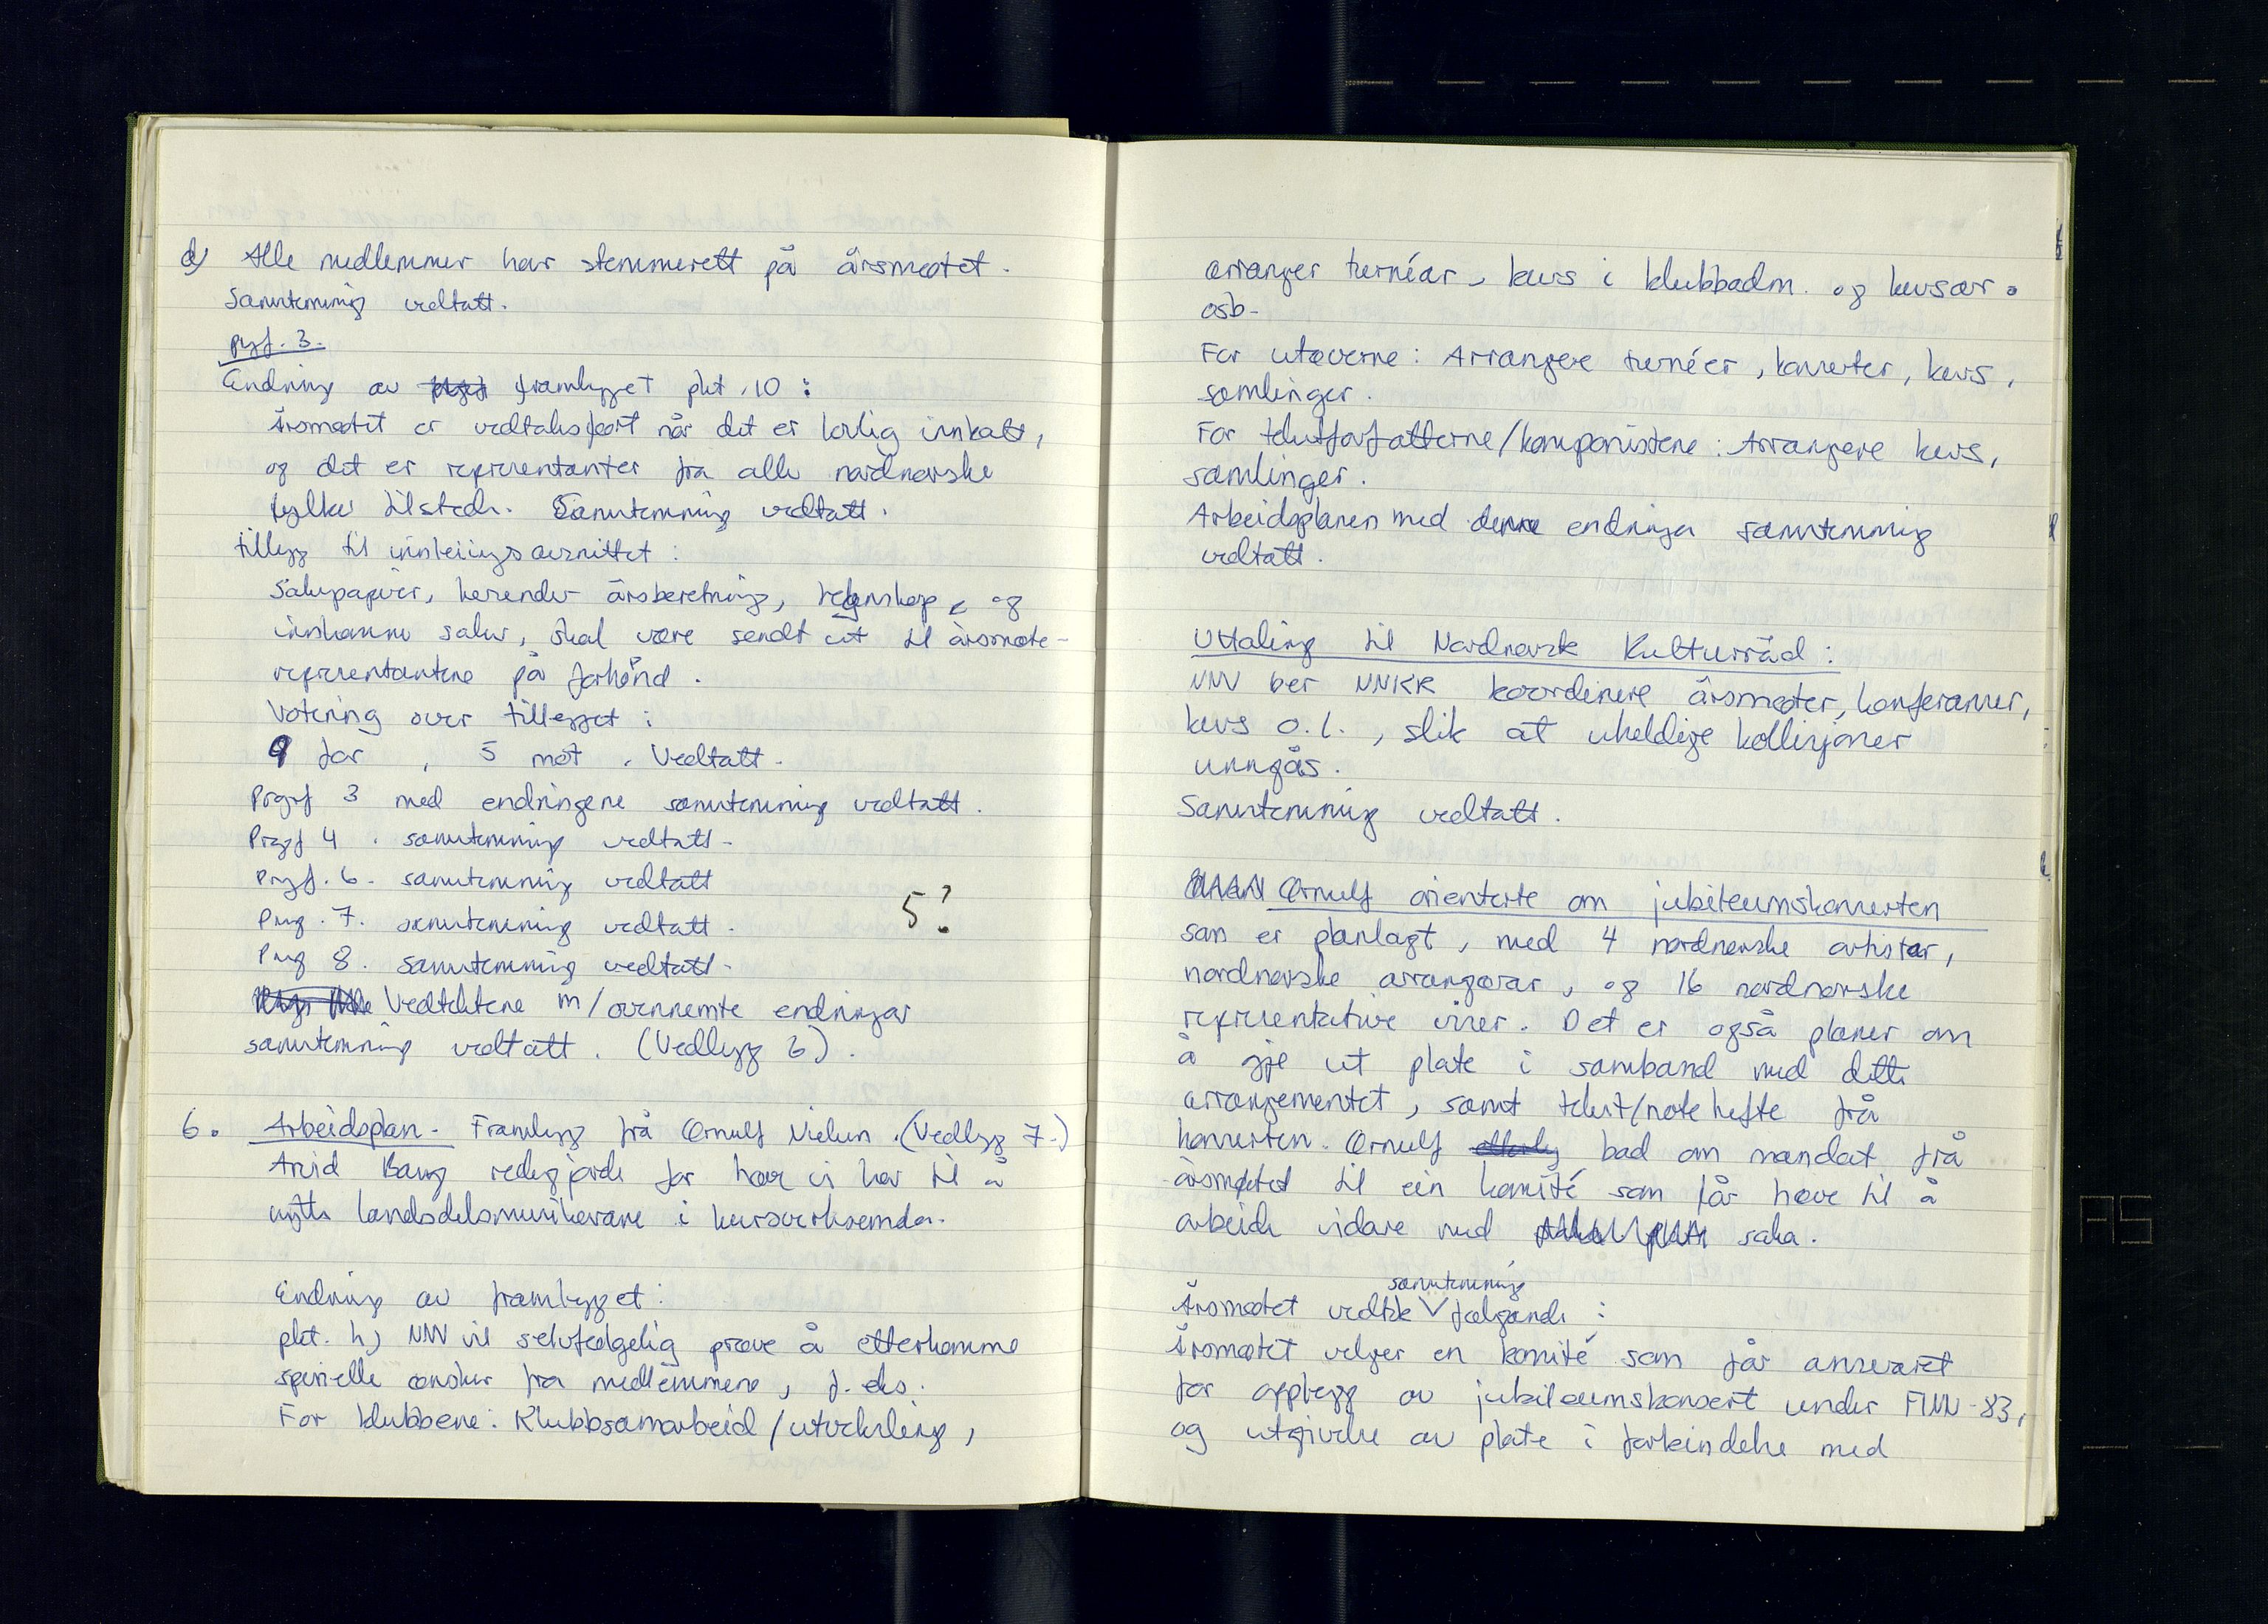 d) Alle medlemmer har stemmerett på årsmøtet.
Samstemmig vedtatt.
prgf. 3.
Endring av framlegget pkt. 10:
Årsmøtet er vedtaksført når det er lovlig innkalt,
og det er representanter fra alle nordnorske
fylker tilstede. Samstemmig vedtatt.
tillegg til innleiingsavsnittet:
Sakspapirer, herunder årsberetning, regnskap, og
innkomne saker, skal være sendt ut til årsmøte-
representantene på forhånd.
Votering over tillegget:
9 for, 5 mot. Vedtatt.
Prgrf 3 med endringene samstemmig vedtatt.
Prgf 4. samstemmig vedtatt.
Prgf. 6. samstemmig vedtatt
Prg. 7. samstemmig vedtatt.
5?
Prg 8. samstemmig vedtatt.
Vedtektene m/ovennemte endringar
samstemmig vedtatt. (Vedlegg 6).
6. Arbeidsplan. Framlegg frå Ørnulf Nielsen. (Vedlegg 7.)
Arvid Bang redegjorde for høve vi har til å
nytte landsdelsmusikerane i kursverksemda.
Endring av framlegget:
pkt. h) NNV vil selvfølgelig prøve å etterkomme
spesielle ønsker fra medlemmene, f. eks.
For klubbene: Klubbsamarbeid/utveksling,
arranger turnéar, kurs i klubbadm. og kursar.
osb.
For utøverne: Arrangere turnéer, konserter, kurs,
samlinger.
For tekstforfatterne/komponistene: Arrangere kurs,
samlinger.
Arbeidsplanen med denne endringa samstemmig
vedtatt.
Uttaling til Nordnorsk Kulturråd:
NNV ber NNKR koordinere årsmøter, konferanser,
kurs o.l., slik at uheldige kollisjoner
unngås.
Samstemmig vedtatt.
Ørnulf orienterte om jubileumskonserten
som er planlagt, med 4 nordnorske artistar,
nordnorske arrangørar, og 16 nordnorske
representative viser. Det er også planer om
å gje ut plate i samband med dette
arrangementet, samt tekst/notehefte frå
konserten. Ørnulf bad om mandat frå
årsmøtet til ein komité som får høve til å
arbeide vidare med saka.
Årsmøtet vedtok samstemmig følgende:
Årsmøtet velger en komité som får ansvaret
for opplegg av jubileumskonsert under FINN-83,
og utgivelse av plate i forbindelse med